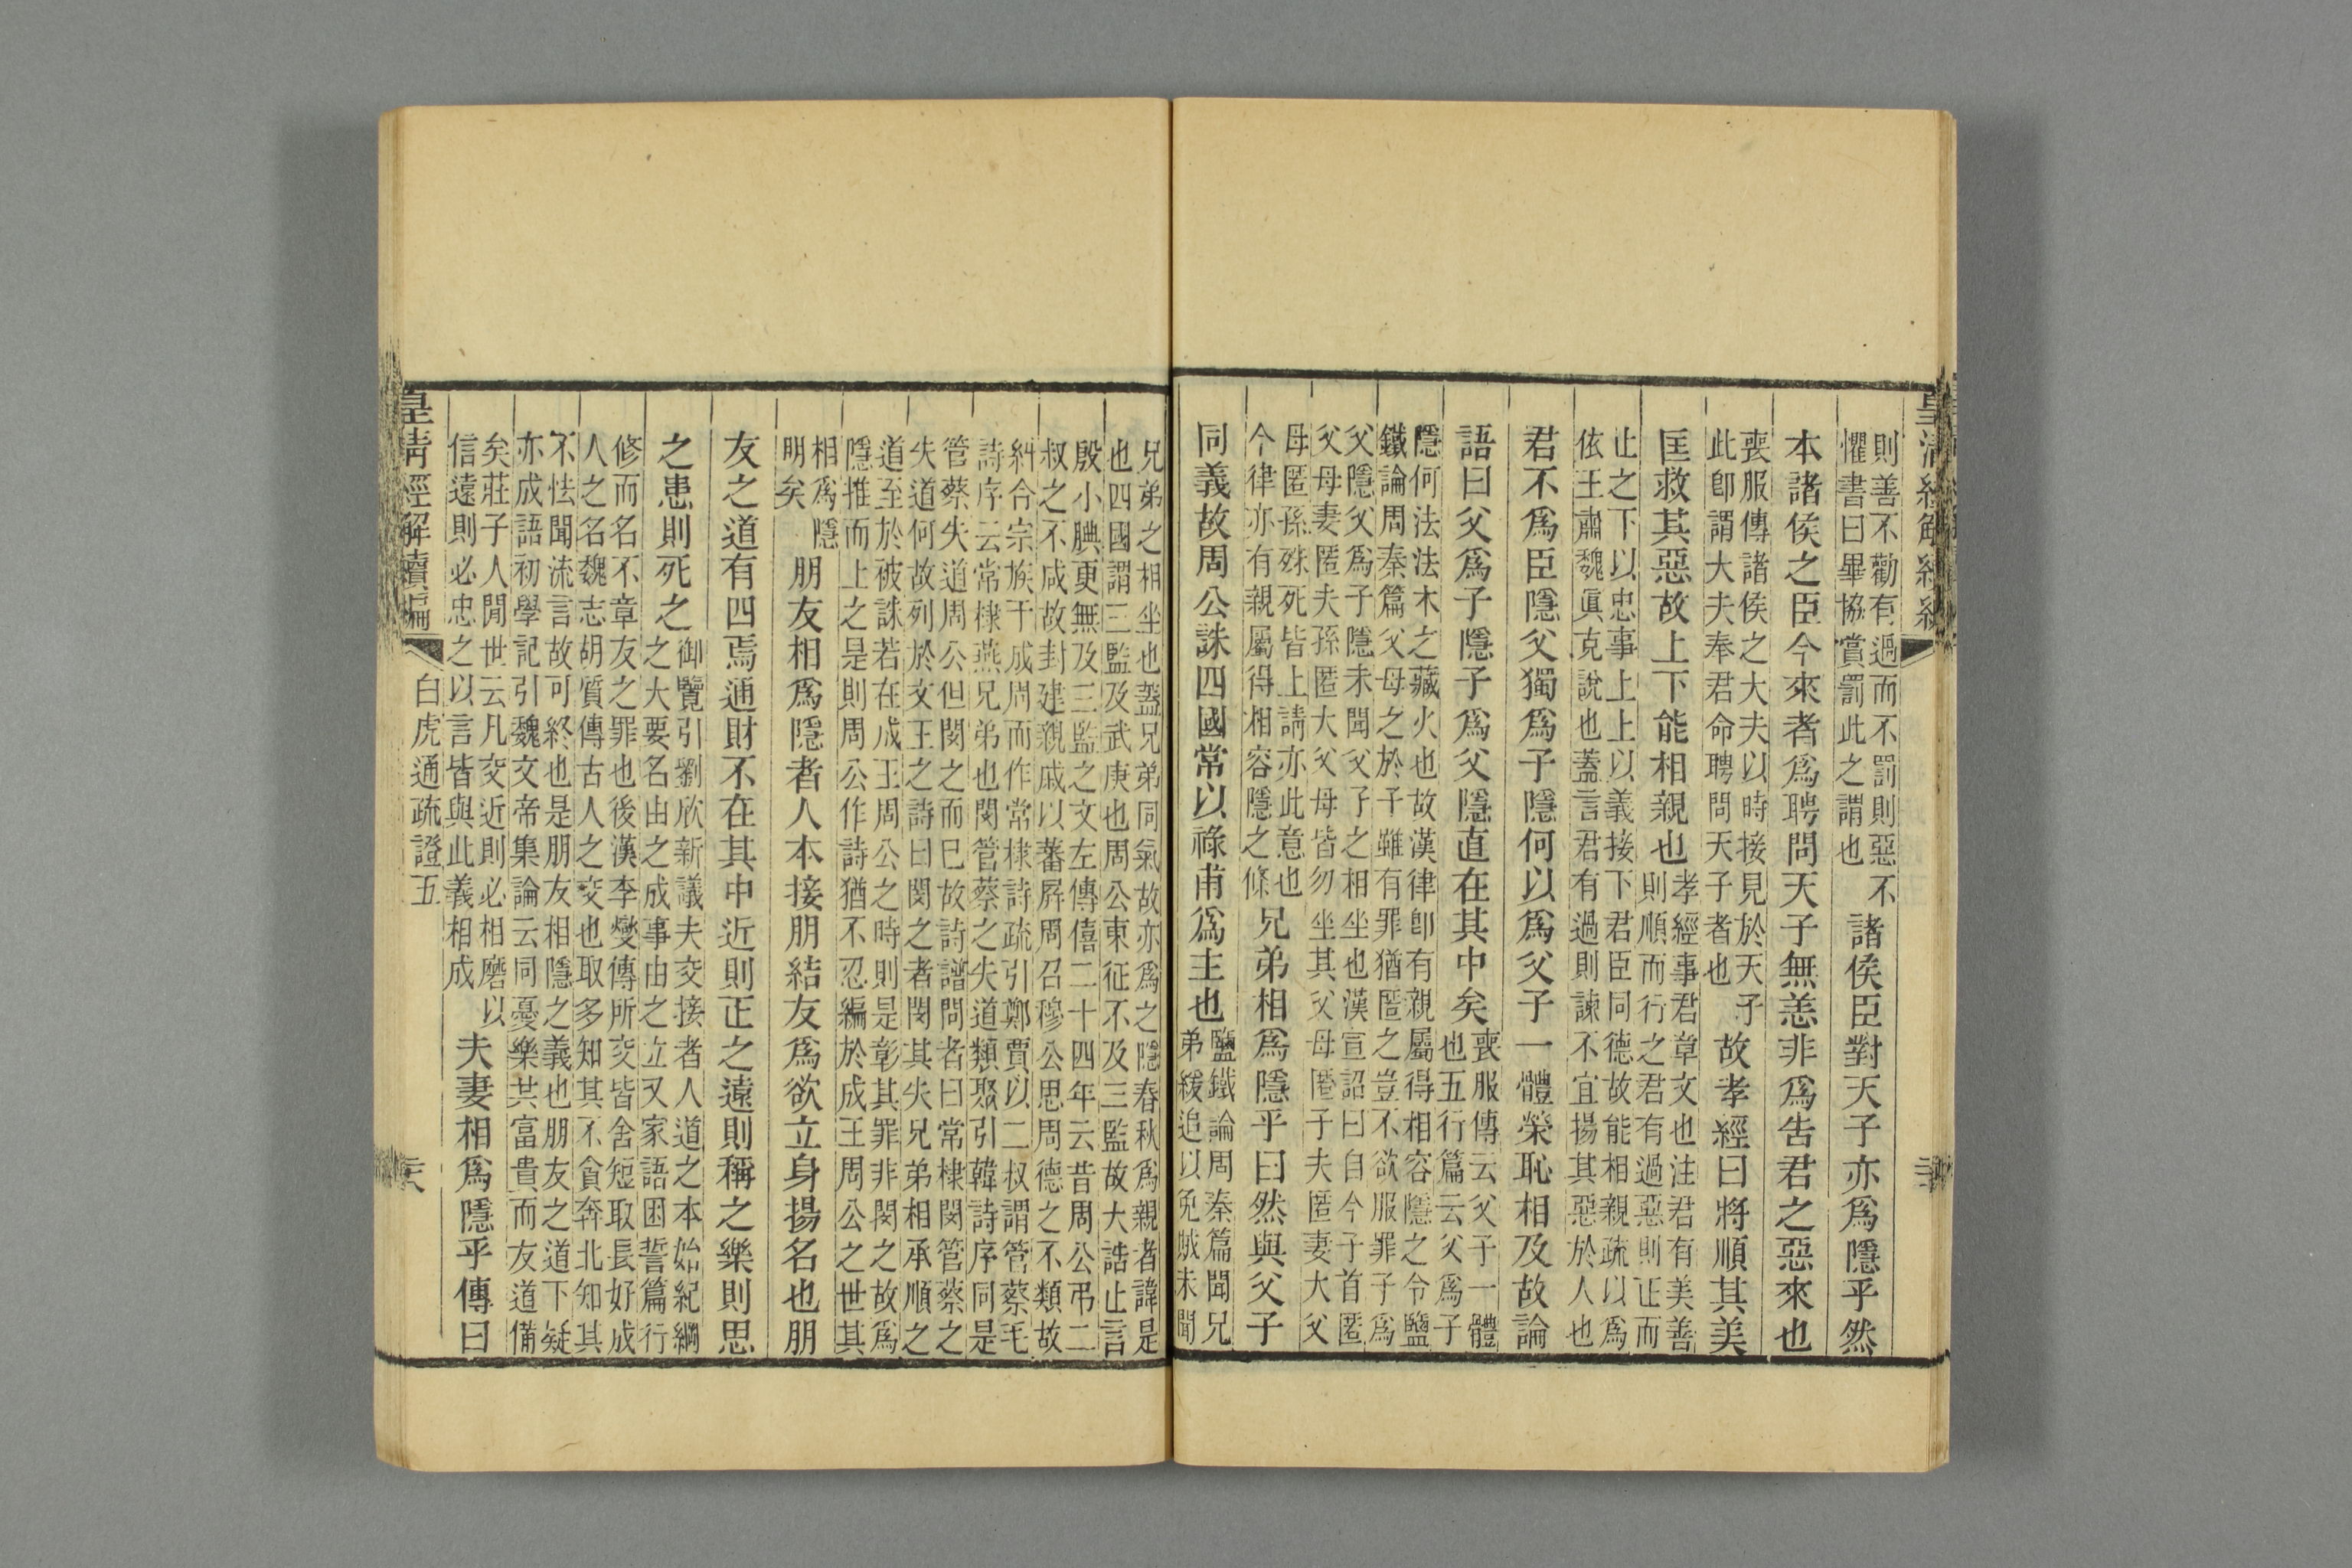 則善不勸有過而不罰則惡不
懼書曰畢協賞罰此之謂也
諸侯臣對天子亦爲隱乎然
本諸侯之臣今來者爲聘問天子無恙非爲告君之惡來也
喪服傳諸侯之大夫以時接見於天子
此卽謂大夫奉君命聘問天子者也
故孝經曰將順其美
匡救其惡故上下能相親也
孝經事君章文也注君有美善
則順而行之君有過惡則正而
止之下以忠事上上以義接下君臣同德故能相親疏以爲
依王肅魏眞克說也蓋言君有過則諫不宜揚其惡於人也
君不爲臣隱父獨爲子隱何以爲父子一體榮恥相及故論
語曰父爲子隱子爲父隱直在其中矣
喪服傳云父子一體
也五行篇云父爲子
隱何法法木之藏火也故漢律卽有親屬得相容隱之令鹽
鐵論周秦篇父母之於子雖有罪猶匿之豈不欲服罪子爲
父隱父爲子隱未聞父子之相坐也漢宣詔曰自今子首匿
父母妻匿夫孫匿大父母皆勿坐其父母匿子夫匿妻大父
母匿孫殊死皆上請亦此意也
今律亦有親屬得相容隱之條
兄弟相爲隱乎曰然與父子
同義故周公誅四國常以祿甫爲主也
鹽鐵論周秦篇聞兄
弟緩追以免賊未聞
兄弟之相坐也蓋兄弟同氣故亦爲之隱春秋爲親者諱是
也四國謂三監及武庚也周公東征不及三監故大誥止言
殷小腆更無及三監之文左傳僖二十四年云昔周公弔二
叔之不咸故封建親戚以蕃屛周召穆公思周德之不類故
糾合宗族于成周而作常棣詩疏引鄭賈以二叔謂管蔡毛
詩序云常棣燕兄弟也閔管蔡之失道類聚引韓詩序同是
管蔡失道周公但閔之而已故詩譜問者曰常棣閔管蔡之
失道何故列於文王之詩曰閔之者閔其失兄弟相承順之
道至於被誅若在成王周公之時則是彰其罪非閔之故爲
隱推而上之是則周公作詩猶不忍編於成王周公之世其
相爲隱
明矣
朋友相爲隱者人本接朋結友爲欲立身揚名也朋
友之道有四焉通財不在其中近則正之遠則稱之樂則思
之患則死之
御覽引劉欣新議夫交接者人道之本始紀綱
之大要名由之成事由之立又家語困誓篇行
修而名不章友之罪也後漢李燮傳所交皆舍短取長好成
人之名魏志胡質傳古人之交也取多知其不貪奔北知其
不怯聞流言故可終也是朋友相隱之義也朋友之道下疑
亦成語初學記引魏文帝集論云同憂樂共富貴而友道備
矣莊子人閒世云凡交近則必相磨以
信遠則必忠之以言皆與此義相成
夫妻相爲隱乎傳曰
皇清經解續編
白虎通疏證五